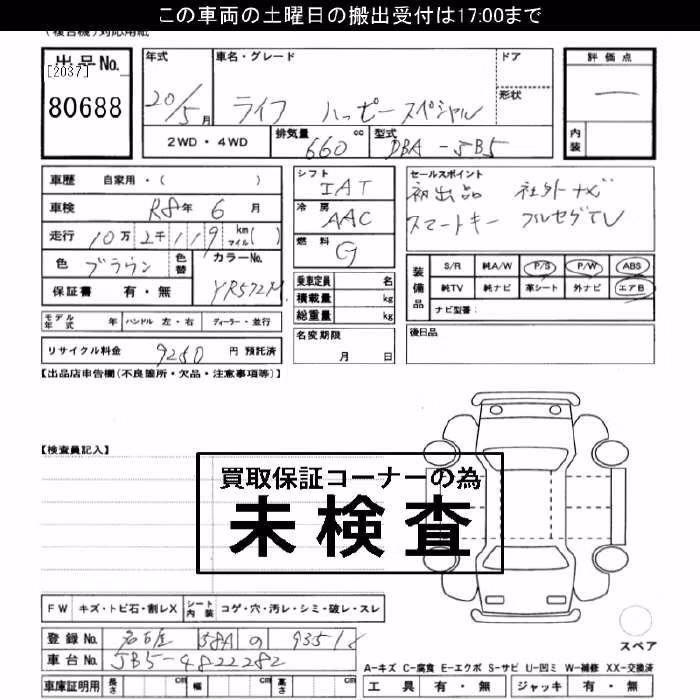 この車両の土曜日の搬出受付は17:00まで
(複合機)対応用紙
出品No.
[2037]
80688
年式
20/5月
車名・グレード
ライフ ハッピースペシャル
ドア
形状
評価点
内装
2WD・4WD
排気量
660 cc
型式
DBA-JB5
車歴 自家用・( )
車検 R8年 6月
走行 10万2千119 km マイル( )
色 ブラウン
色替
カラーNo.
YR572M
保証書 有・無
モデル年式 年
ハンドル 左・右
ディーラー・並行
リサイクル料金 9250 円 預託済
シフト
IAT
冷房
AAC
燃料
G
乗車定員 名
積載量 kg
総重量 kg
名変期限
月 日
セールスポイント
初出品 社外ナビ
スマートキー フルセグTV
装備品
S/R 純A/W P/S P/W ABS
純TV 純ナビ 革シート 外ナビ エアB
ナビ型番:
後日品
【出品店申告欄(不良箇所・欠品・注意事項等)】
【検査員記入】
買取保証コーナーの為
未検査
FW キズ・トビ石・割レX
シート内装 コゲ・穴・汚レ・シミ・破レ・スレ
登録No. 名古屋 58A の 9351
車台No. JB5-4822282
車庫証明用 長さ cm 幅 cm 高さ cm
スペア
A-キズ C-腐食 E-エクボ S-サビ U-凹ミ W-補修 XX-交換済
工具 有・無 ジャッキ 有・無